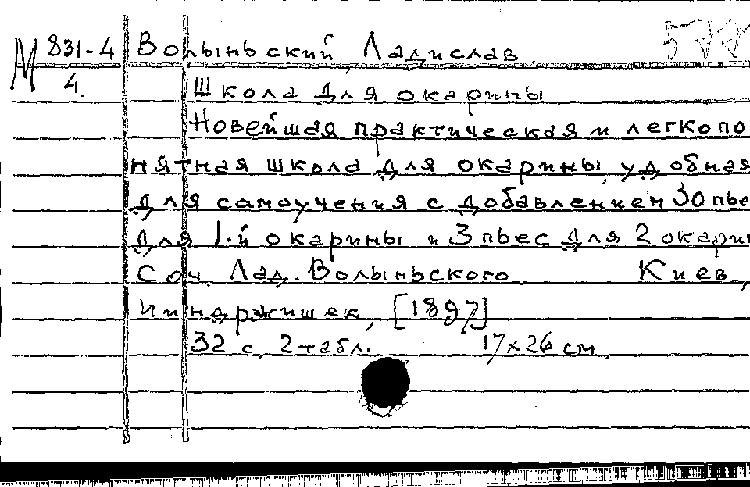 М 831-4 Волыньский, Ладислав
4.
Школа для окарины
Новейшая практическая и легкопо
нятная школа для окарины, удобная
для самоучения с добавлением 30 пье
для 1-й окарины и 3 пьес для 2 окари
Соч. Лад. Волыньского. Киев,
Индржишек, [1897]
32 с, 2 табл. 17х26 см.